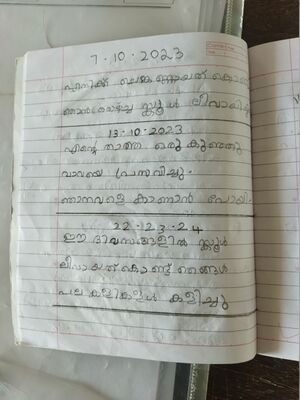 7.10.2023
എനിക്ക് ചെങ്കണ്ണായത് കൊണ്ട്
ഞാൻ സ്കൂൾ ലീവായി
13.10.2023
എന്റെ താത്ത ഒരു കുഞ്ഞു
വാവയെ പ്രസവിച്ചു.
ഞാനവളെ കാണാൻ പോയി.
22.23.24
ഈ ദിവസങ്ങളിൽ സ്കൂൾ
ലീവായത് കൊണ്ട് ഞങ്ങൾ
പല കളികൾ കളിച്ചു